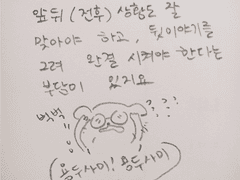 앞뒤 (전후) 상황도 잘
맞아야 하고, 뒷이야기를
그려 완결 시켜야 한다는
부담이 있지요
벅벅
???
용두사미! 용두사미